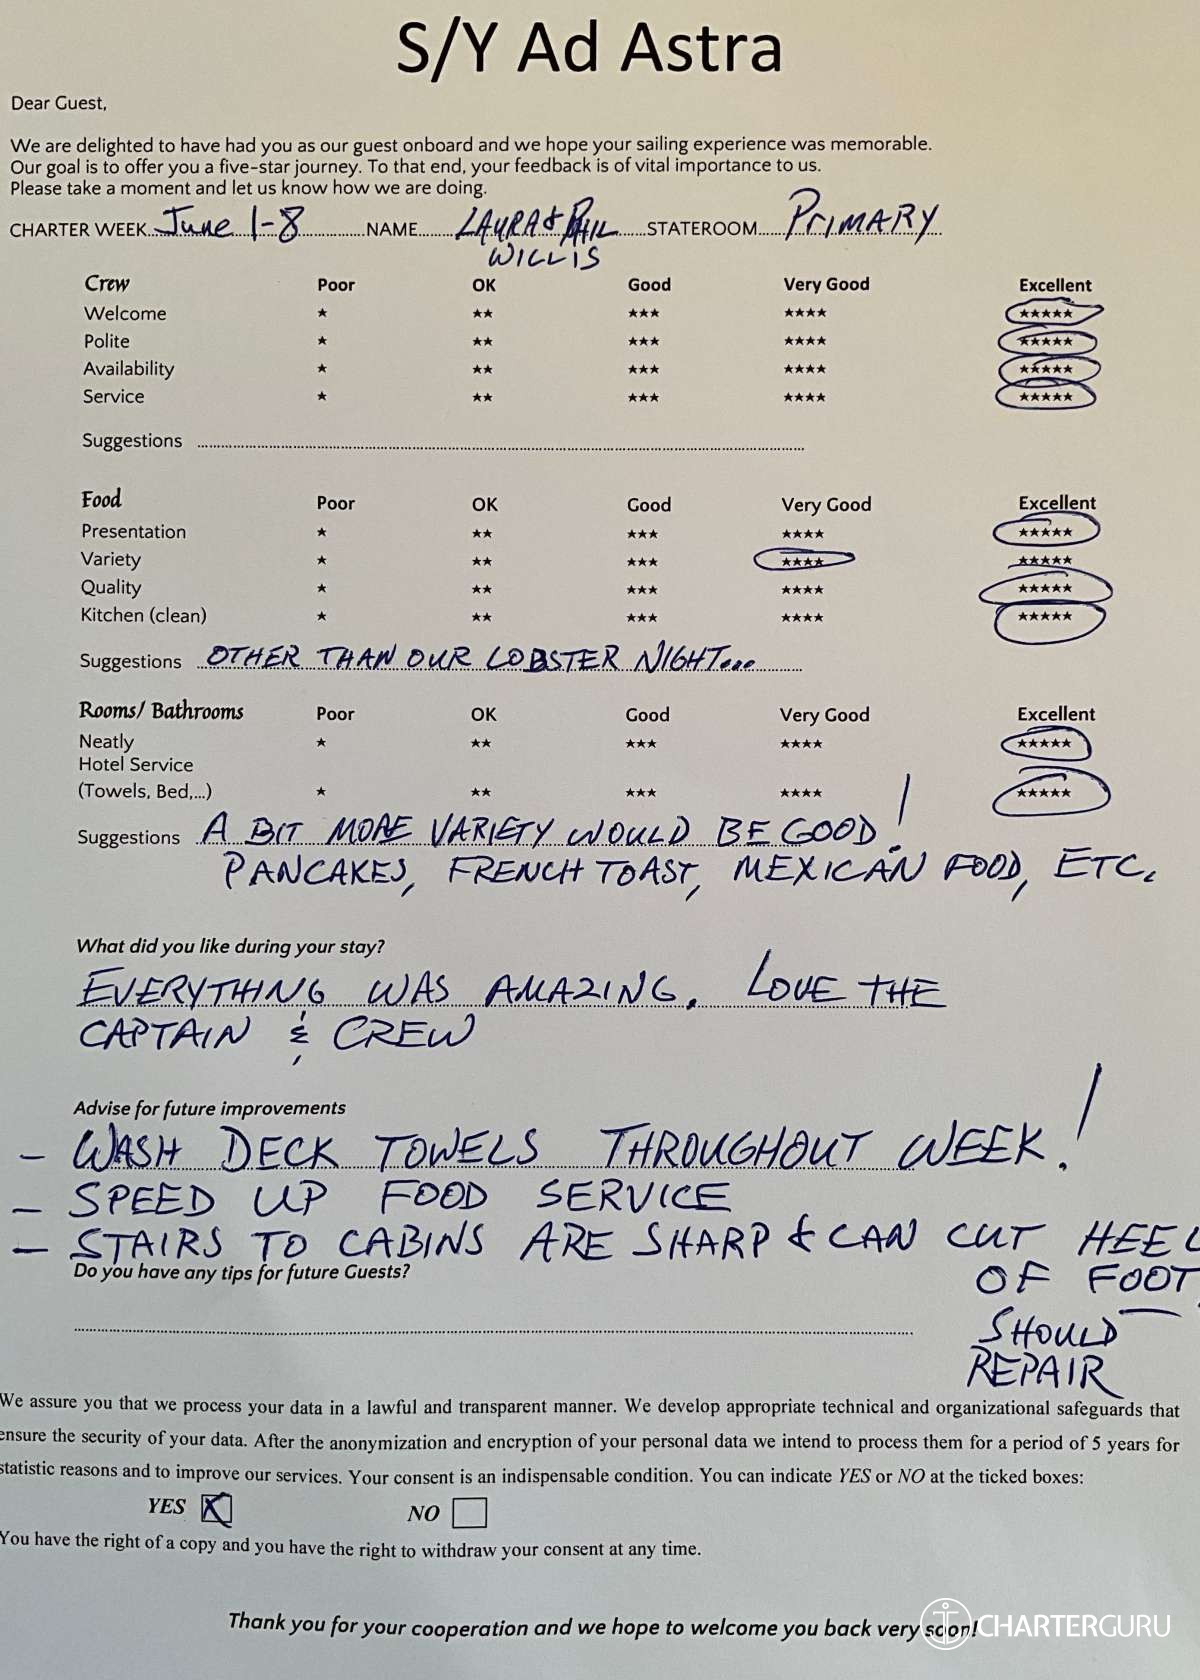 S/Y Ad Astra
Dear Guest,
We are delighted to have had you as our guest onboard and we hope your sailing experience was memorable.
Our goal is to offer you a five-star journey. To that end, your feedback is of vital importance to us.
Please take a moment and let us know how we are doing.
CHARTER WEEK June 1-8 NAME LAURA & PHIL STATEROOM PRIMARY
WILLIS
Crew Poor OK Good Very Good Excellent
Welcome ★ ★★ ★★★ ★★★★ ★★★★★
Polite ★ ★★ ★★★ ★★★★ ★★★★★
Availability ★ ★★ ★★★ ★★★★ ★★★★★
Service ★ ★★ ★★★ ★★★★ ★★★★★
Suggestions
Food Poor OK Good Very Good Excellent
Presentation ★ ★★ ★★★ ★★★★ ★★★★★
Variety ★ ★★ ★★★ ★★★★ ★★★★★
Quality ★ ★★ ★★★ ★★★★ ★★★★★
Kitchen (clean) ★ ★★ ★★★ ★★★★ ★★★★★
Suggestions OTHER THAN OUR LOBSTER NIGHT...
Rooms/ Bathrooms Poor OK Good Very Good Excellent
Neatly ★ ★★ ★★★ ★★★★ ★★★★★
Hotel Service
(Towels, Bed,...) ★ ★★ ★★★ ★★★★ ★★★★★
Suggestions A BIT MORE VARIETY WOULD BE GOOD!
PANCAKES, FRENCH TOAST, MEXICAN FOOD, ETC.
What did you like during your stay?
EVERYTHING WAS AMAZING. LOVE THE
CAPTAIN & CREW
Advise for future improvements
- WASH DECK TOWELS THROUGHOUT WEEK!
- SPEED UP FOOD SERVICE
- STAIRS TO CABINS ARE SHARP & CAN CUT HEEL
Do you have any tips for future Guests?
OF FOOT.
SHOULD
REPAIR
We assure you that we process your data in a lawful and transparent manner. We develop appropriate technical and organizational safeguards that
ensure the security of your data. After the anonymization and encryption of your personal data we intend to process them for a period of 5 years for
statistic reasons and to improve our services. Your consent is an indispensable condition. You can indicate YES or NO at the ticked boxes:
YES X NO
You have the right of a copy and you have the right to withdraw your consent at any time.
Thank you for your cooperation and we hope to welcome you back very soon!
CHARTERGURU